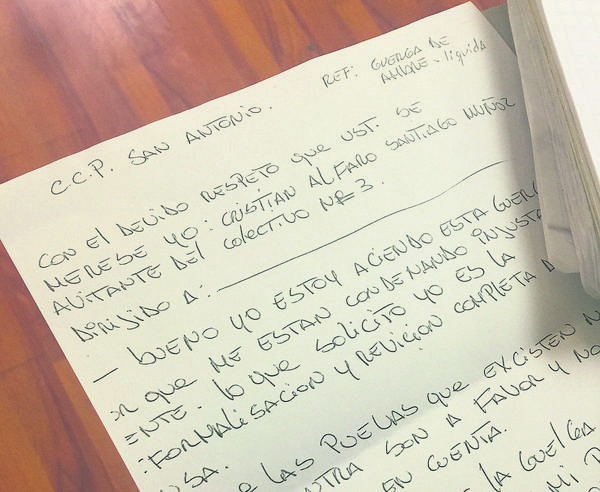 REF: GUERGA DE
AMBRE - liquida
C.C.P. SAN ANTONIO.
CON EL DEVIDO RESPETO QUE UST. SE
MERESE YO: CRISTIAN ALFARO SANTIAGO MUÑOZ
AVITANTE DEL COLECTIVO Nº 3.
DIRIJIDO A:
— BUENO YO ESTOY ACIENDO ESTA GUERG
OR QUE ME ESTAN CONDENANDO INJUSTA
ENTE - LO QUE SOLICITO YO ES LA
FORMALISACION Y REVICION COMPLETA D
USA.
E LAS PUEVAS QUE EXCISTEN
NTRA SON A FAVOR Y NO
EN CUENTA.
LA GUELGA
MI